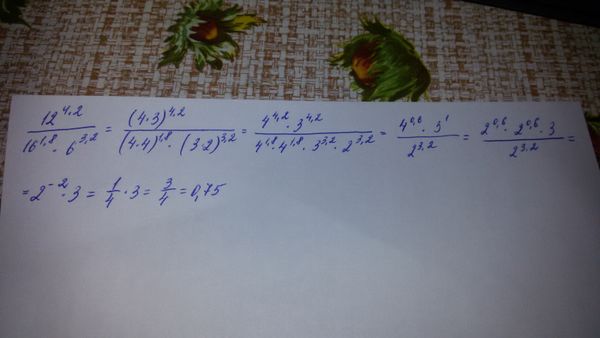 12^4,2 / (16^1,8 · 6^3,2) = (4·3)^4,2 / ((4·4)^1,8 · (3·2)^3,2) = (4^4,2 · 3^4,2) / (4^1,8 · 4^1,8 · 3^3,2 · 2^3,2) = (4^0,6 · 3^1) / 2^3,2 = (2^0,6 · 2^0,6 · 3) / 2^3,2 =
= 2^-2 · 3 = 1/4 · 3 = 3/4 = 0,75